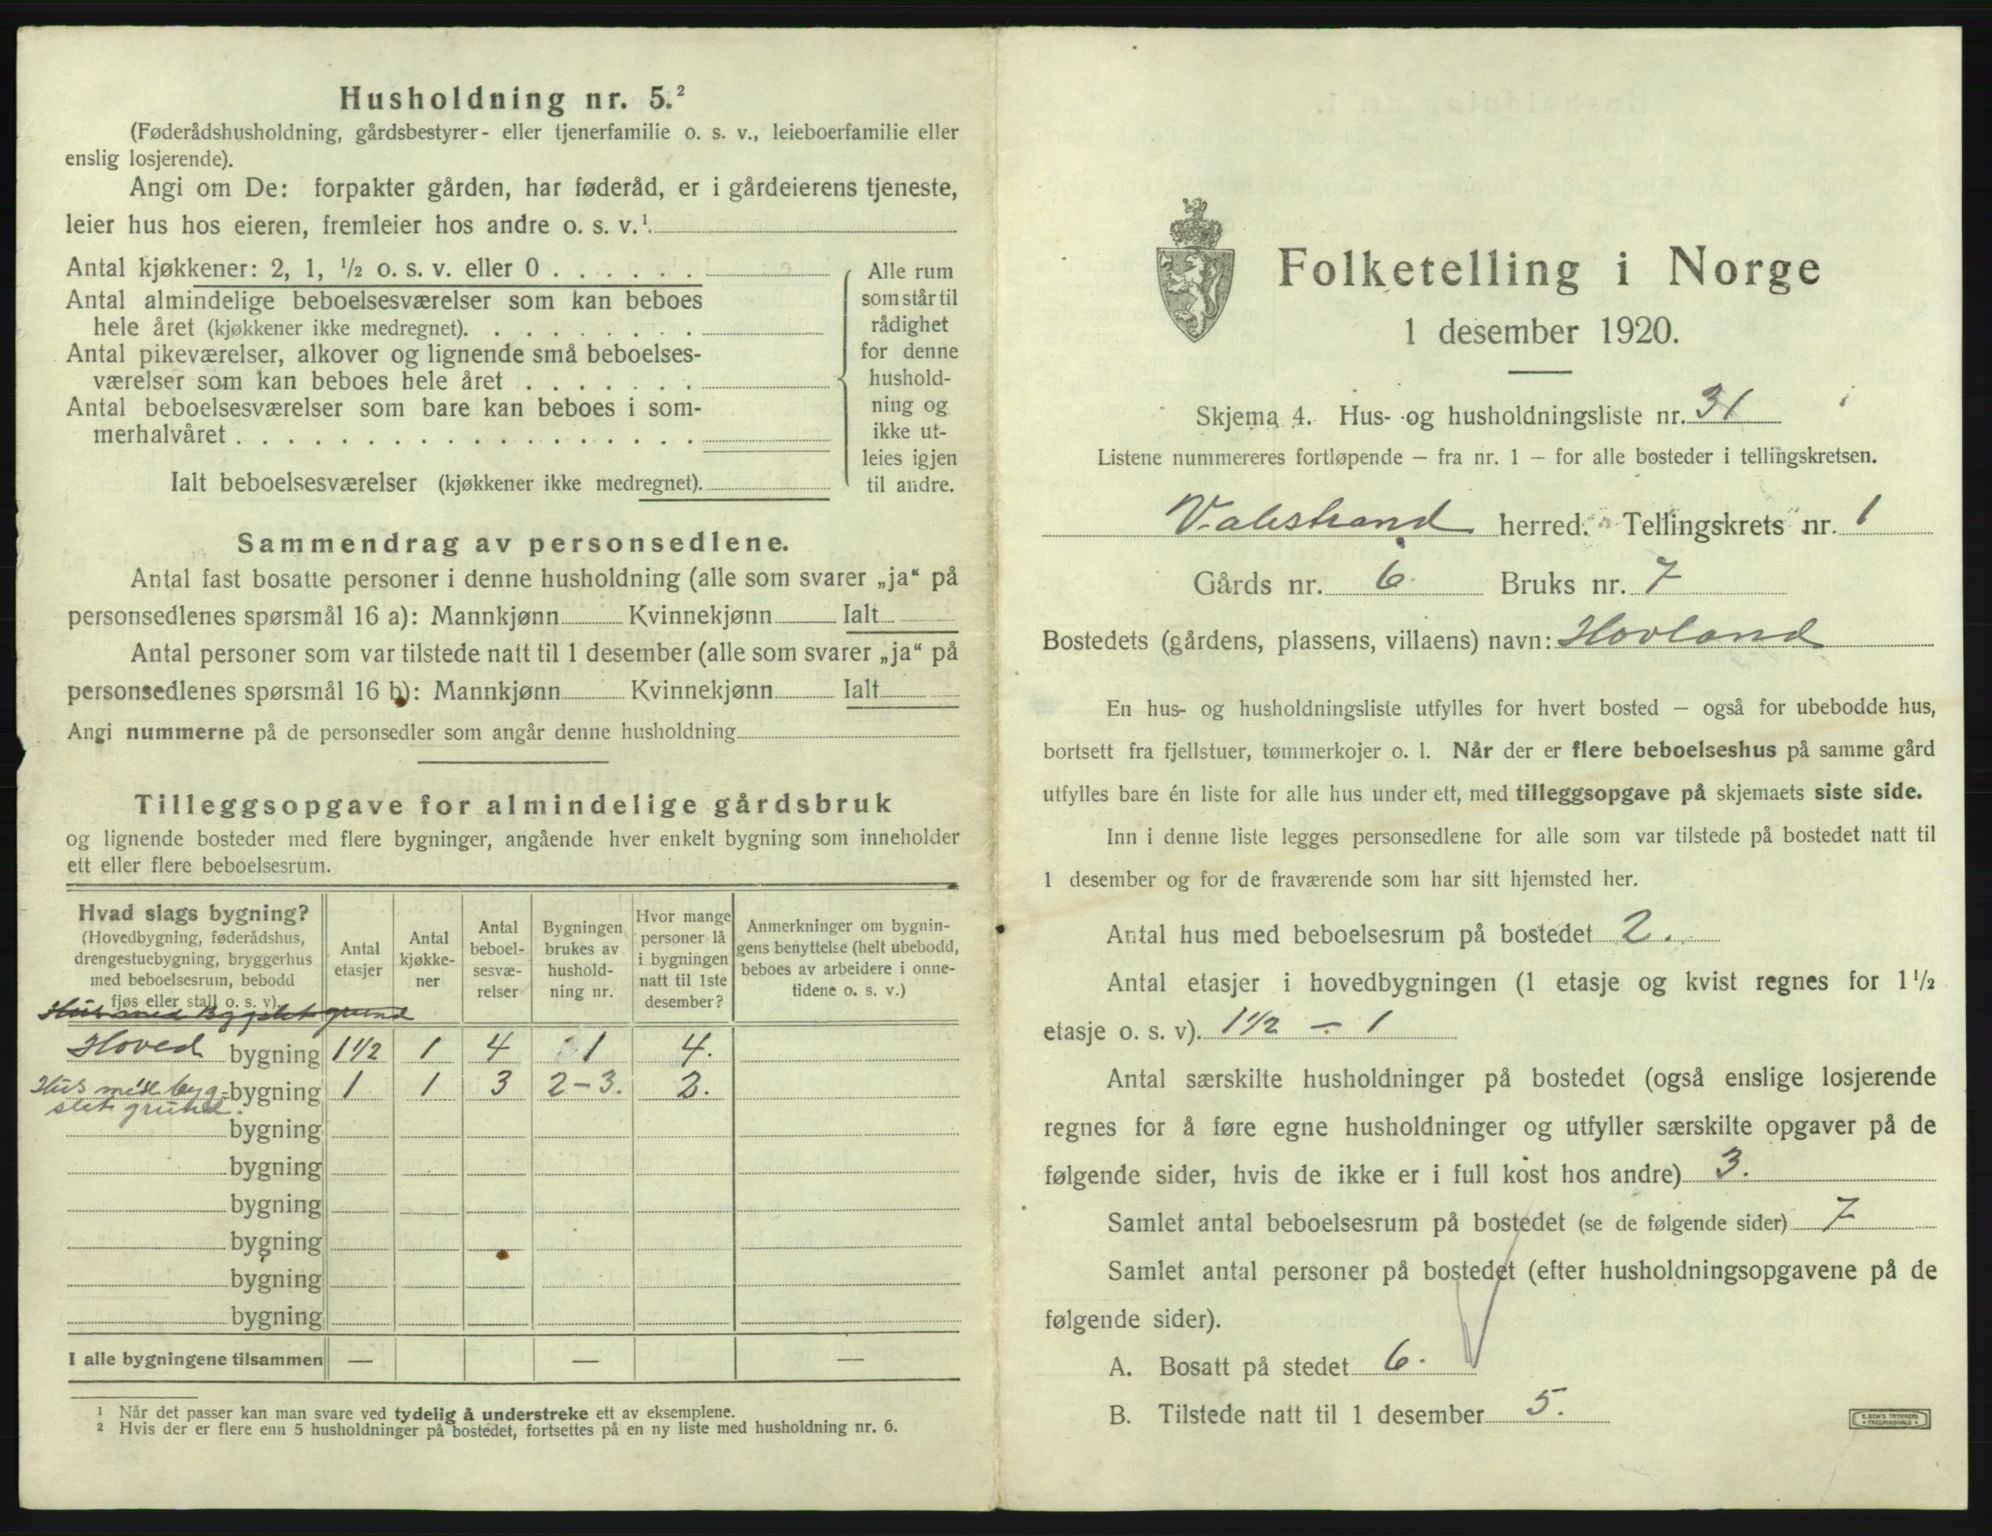 Husholdning nr. 5.²
(Føderådshusholdning, gårdsbestyrer- eller tjenerfamilie o. s. v., leieboerfamilie eller
enslig losjerende).
Angi om De: forpakter gården, har føderåd, er i gårdeierens tjeneste,
leier hus hos eieren, fremleier hos andre o. s. v.¹
Antal kjøkkener: 2, 1, ½ o. s. v. eller 0 . . . . . .
Antal almindelige beboelsesværelser som kan beboes
hele året (kjøkkener ikke medregnet). . . . . . . . .
Antal pikeværelser, alkover og lignende små beboelses-
værelser som kan beboes hele året . . . . . . .
Antal beboelsesværelser som bare kan beboes i som-
merhalvåret . . . . . . . . . . . . . . . . . .
Ialt beboelsesværelser (kjøkkener ikke medregnet).
Alle rum
som står til
rådighet
for denne
hushold-
ning og
ikke ut-
leies igjen
til andre.
Sammendrag av personsedlene.
Antal fast bosatte personer i denne husholdning (alle som svarer „ja“ på
personsedlenes spørsmål 16 a): Mannkjønn Kvinnekjønn Ialt
Antal personer som var tilstede natt til 1 desember (alle som svarer „ja“ på
personsedlenes spørsmål 16 b): Mannkjønn Kvinnekjønn Ialt
Angi nummerne på de personsedler som angår denne husholdning
Tilleggsopgave for almindelige gårdsbruk
og lignende bosteder med flere bygninger, angående hver enkelt bygning som inneholder
ett eller flere beboelsesrum.
Hvad slags bygning?
(Hovedbygning, føderådshus,
drengestuebygning, bryggerhus
med beboelsesrum, bebodd
fjøs eller stall o. s. v).
Antal
etasjer
Antal
kjøkke-
ner
Antal
beboel-
sesvæ-
relser
Bygningen
brukes av
hushold-
ning nr.
Hvor mange
personer lå
i bygningen
natt til 1ste
desember?
Anmerkninger om bygnin-
gens benyttelse (helt ubebodd,
beboes av arbeidere i onne-
tidene o. s. v.)
Hus med bygslet grund
Hoved bygning 1½ 1 4 1 4.
Hus med byg- bygning 1 1 3 2-3. 2.
slet grund.
bygning
bygning
bygning
bygning
bygning
bygning
I alle bygningene tilsammen — — —
¹ Når det passer kan man svare ved tydelig å understreke ett av eksemplene.
² Hvis der er flere enn 5 husholdninger på bostedet, fortsettes på en ny liste med husholdning nr. 6.
Folketelling i Norge
1 desember 1920.
Skjema 4. Hus- og husholdningsliste nr. 31
Listene nummereres fortløpende – fra nr. 1 – for alle bosteder i tellingskretsen.
Valestrand herred. Tellingskrets nr. 1
Gårds nr. 6. Bruks nr. 7
Bostedets (gårdens, plassens, villaens) navn: Hovland
En hus- og husholdningsliste utfylles for hvert bosted – også for ubebodde hus,
bortsett fra fjellstuer, tømmerkojer o. l. Når der er flere beboelseshus på samme gård
utfylles bare én liste for alle hus under ett, med tilleggsopgave på skjemaets siste side.
Inn i denne liste legges personsedlene for alle som var tilstede på bostedet natt til
1 desember og for de fraværende som har sitt hjemsted her.
Antal hus med beboelsesrum på bostedet 2.
Antal etasjer i hovedbygningen (1 etasje og kvist regnes for 1½
etasje o. s. v). 1½ – 1
Antal særskilte husholdninger på bostedet (også enslige losjerende
regnes for å føre egne husholdninger og utfyller særskilte opgaver på de
følgende sider, hvis de ikke er i full kost hos andre) 3.
Samlet antal beboelsesrum på bostedet (se de følgende sider) 7
Samlet antal personer på bostedet (efter husholdningsopgavene på de
følgende sider).
A. Bosatt på stedet 6.
B. Tilstede natt til 1 desember 5.